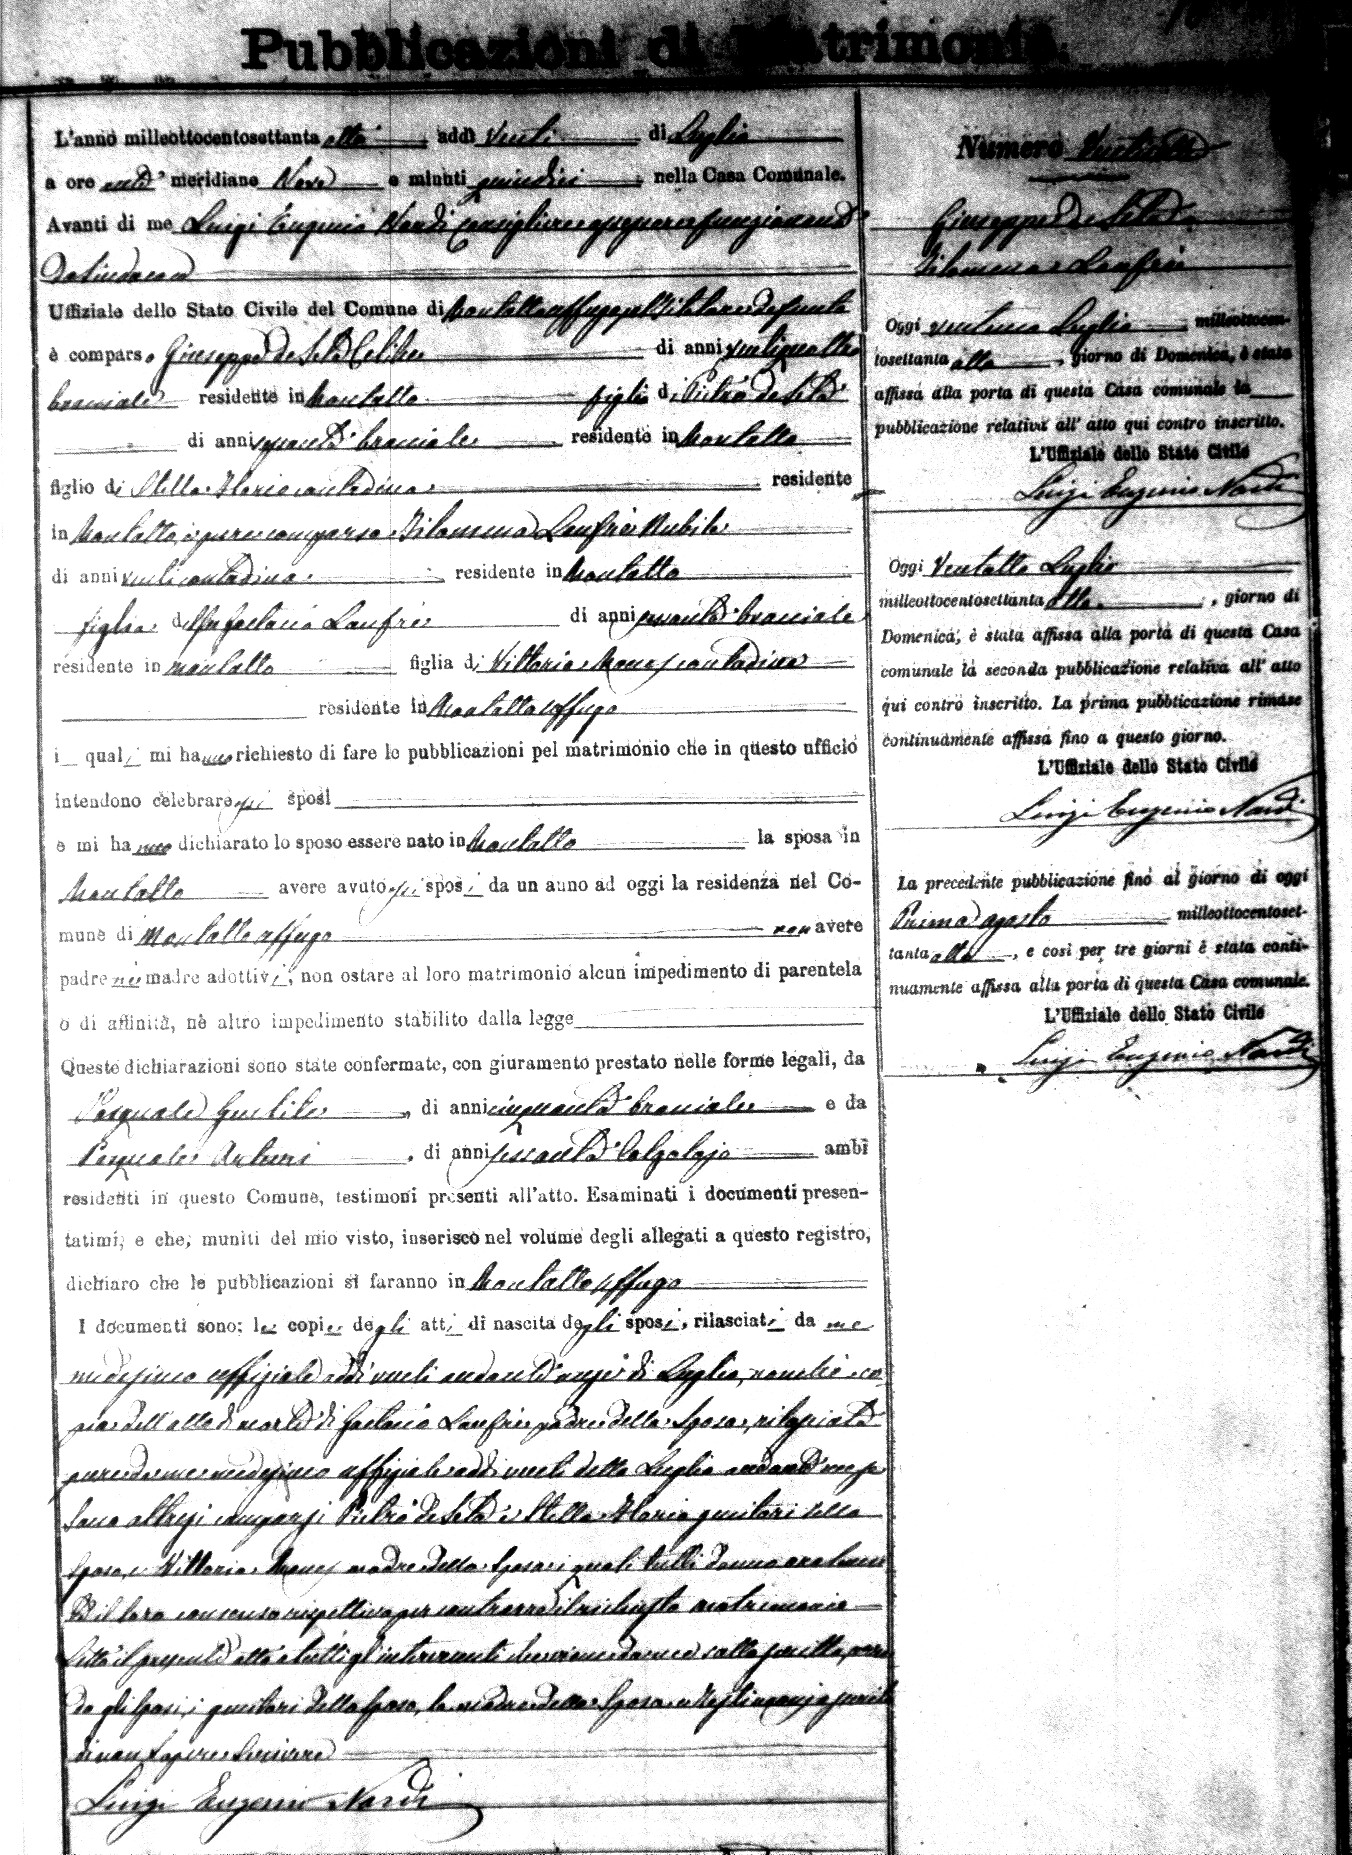 Pubblicazioni di Matrimonio.
L'anno milleottocentosettanta otto addì Venti di Luglio
a ore anti meridiane Nove e minuti quindici nella Casa Comunale.
Avanti di me Luigi Eugenio Nardi Consigliere funzionante
da Sindaco
Uffiziale dello Stato Civile del Comune di Montalto Uffugo pel titolare
è comparso Giuseppe de Seta Celibe di anni ventiquattro
bracciale residente in Montalto figlio di Pietro de Seta
di anni bracciale residente in Montalto
figlio di Stella Ilario contadina residente
in Montalto, è pure comparsa Filomena Lanfrè Nubile
di anni venti contadina residente in Montalto
figlia del fu Gaetano Lanfrè di anni sessanta bracciale
residente in Montalto figlia di Vittoria contadina
residente in Montalto Uffugo
i quali mi hanno richiesto di fare le pubblicazioni pel matrimonio che in questo ufficio
intendono celebrare gli sposi
e mi hanno dichiarato lo sposo essere nato in Montalto la sposa in
Montalto avere avuto gli sposi da un anno ad oggi la residenza nel Co-
mune di Montalto Uffugo non avere
padre nè madre adottivi, non ostare al loro matrimonio alcun impedimento di parentela
o di affinità, nè altro impedimento stabilito dalla legge
Queste dichiarazioni sono state confermate, con giuramento prestato nelle forme legali, da
Pasquale Gentile, di anni cinquanta bracciale e da
Pasquale Arturi, di anni sessanta Calzolajo ambi
residenti in questo Comune, testimoni presenti all'atto. Esaminati i documenti presen-
tatimi, e che, muniti del mio visto, inserisco nel volume degli allegati a questo registro,
dichiaro che le pubblicazioni si faranno in Montalto Uffugo
I documenti sono: le copie degli atti di nascita degli sposi, rilasciati da me
medesimo uffiziale addì venti andante mese di Luglio, nonchè co-
pia dell'atto di morte di Gaetano Lanfrè padre della Sposa, rilasciata
pure da me medesimo uffiziale addì venti detto Luglio andante mese
Sono altresì comparsi Pietro de Seta e Stella Ilario genitori dello
Sposo, e Vittoria madre della Sposa i quali tutti danno
il loro consenso rispettivo per contrarre il richiesto matrimonio
Letto il presente atto a tutti gl'intervenuti viene da me sottoscritto, non
gli Sposi, i genitori dello Sposo, la madre della Sposa e testimonj
di non sapere scrivere
Luigi Eugenio Nardi
Numero Ventiotto
Giuseppe de Seta
Filomena Lanfrè
Oggi ventuno Luglio milleottocen-
tosettanta otto, giorno di Domenica, è stata
affissa alla porta di questa Casa comunale la
pubblicazione relativa all'atto qui contro inscritto.
L'Uffiziale dello Stato Civile
Luigi Eugenio Nardi
Oggi Ventotto Luglio
milleottocentosettanta otto, giorno di
Domenica, è stata affissa alla porta di questa Casa
comunale la seconda pubblicazione relativa all'atto
qui contro inscritto. La prima pubblicazione rimase
continuamente affissa fino a questo giorno.
L'Uffiziale dello Stato Civile
Luigi Eugenio Nardi
La precedente pubblicazione fino al giorno di oggi
Primo agosto milleottocentoset-
tanta otto, e così per tre giorni è stata conti-
nuamente affissa alla porta di questa Casa comunale.
L'Uffiziale dello Stato Civile
Luigi Eugenio Nardi